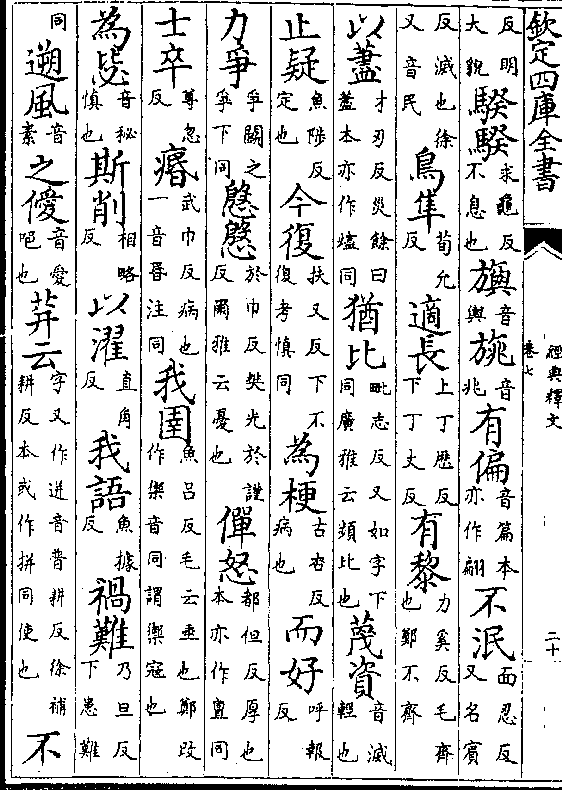 欽定四庫全書
經典釋文
卷七
二十
反明大貌騤騤求龜反不息也旟音輿旐音兆有偏音篇本亦作翩不泯面忍反又名賓
反滅也徐又音民鳥隼荀允反適長上丁歷反下丁丈反有黎力奚反毛齊也鄭不齊
以藎才刃反災餘曰藎本亦作燼同猶比毗志反又如字下同廣雅云頻比也蔑資音滅輕也
止疑魚陟反定也今復扶又反下不復考慎同為梗古杏反病也而好呼報反
力爭爭鬬之爭下同慇慇於巾反樊光於謹反爾雅云憂也僤怒都但反厚也本亦作亶同
士卒尊忽反瘏武巾反病也一音昬注同我圉魚呂反毛云垂也鄭改作禦音同謂禦寇也
為毖音秘慎也斯削相略反以濯直角反我語魚據反禍難乃旦反下患難
同遡風音素之僾音愛唈也荓云字又作迸音普耕反徐補耕反本或作拼同使也不